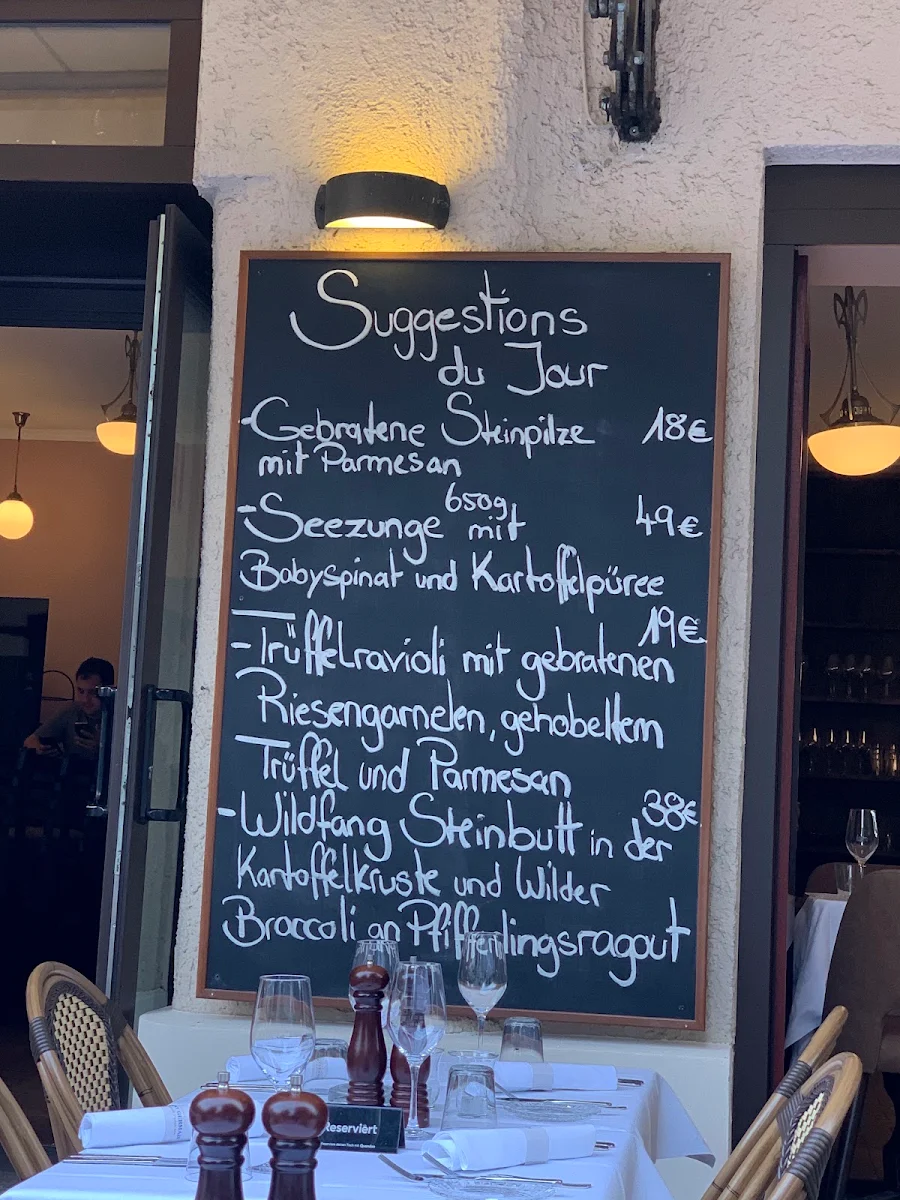 Suggestions
du Jour
- Gebratene Steinpilze 18€
mit Parmesan
- Seezunge 650g mit 49€
Babyspinat und Kartoffelpüree
19€
- Trüffelravioli mit gebratenen
Riesengarnelen, gehobeltem
Trüffel und Parmesan
38€
- Wildfang Steinbutt in der
Kartoffelkruste und Wilder
Broccoli an Pfifferlingsragout
Reserviert